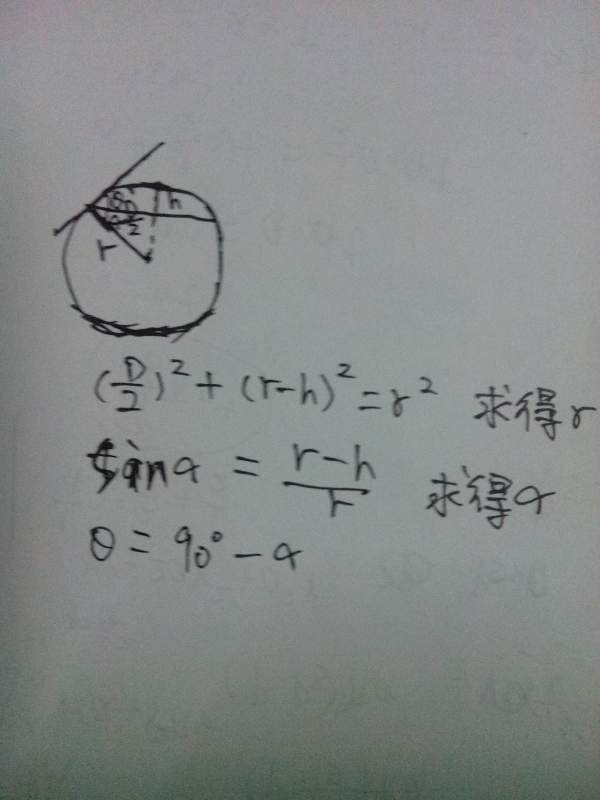 θ h
α D/2
r
(D/2)² + (r-h)² = r² 求得r
sinα = (r-h)/r 求得α
θ = 90° - α